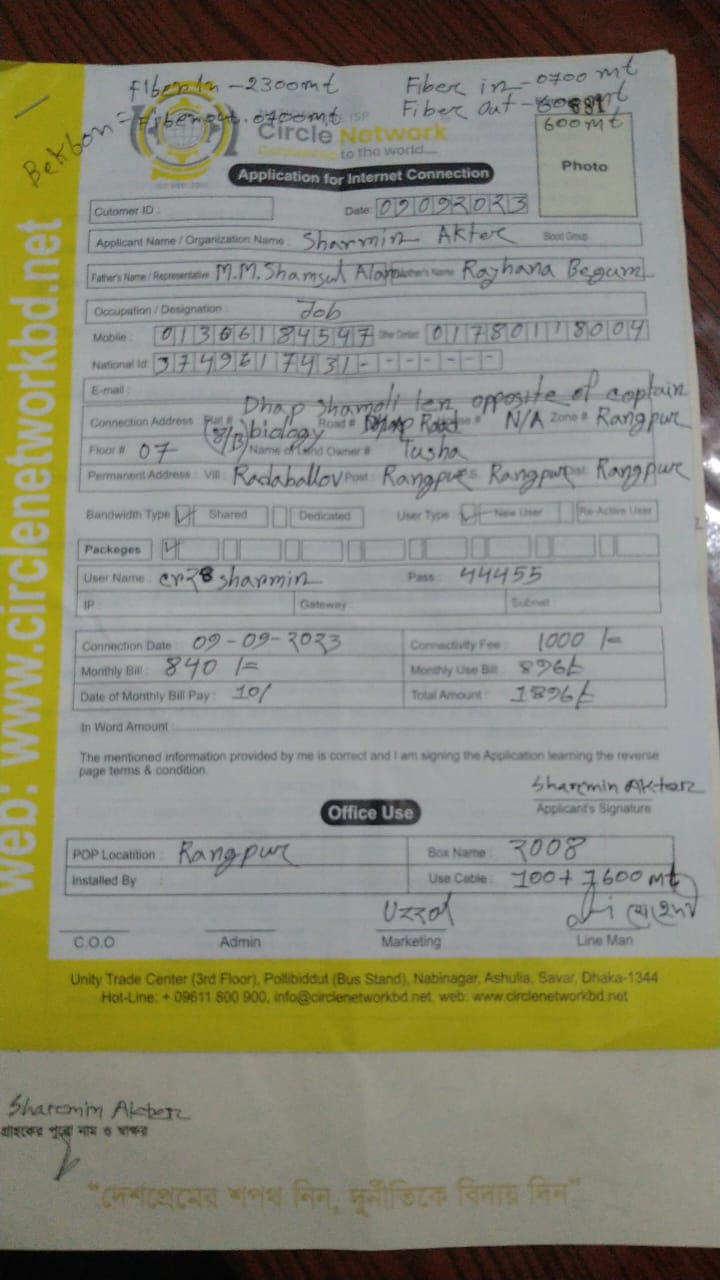 Fiber In - 2300mt
Fiber in - 0700 mt
Bekbon = Fiber out. 0700mt
Fiber out -
600mt
ISP
Circle Network
Connecting to the world....
Photo
Application for Internet Connection
Cutomer ID :
Date: 09092023
Applicant Name / Organization Name : Sharmin Akter Blood Group
Father's Name / Representative M.M. Shamsul Alam Mother's Name Rayhana Begum
Occupation / Designation : Job
Mobile : 01306184547 Other Contact 01780118004
National Id: 3749617431-
E-mail :
Dhap Shamoli len opposite of captain
Connection Address Flat # (8/B) biology Road # Dhap Road N/A Zone # Rangpur
Floor # 07 Name of Land Owner # Tusha
Permanent Address : Vill : Radaballov Post : Rangpur P.S. Rangpur Dist. Rangpur
Bandwidth Type Shared Dedicated User Type New User Re-Active User
Packeges
User Name : sharmin Pass : 44455
IP : Gateway : Subnet
Connection Date : 09-09-2023 Connectivity Fee : 1000/=
Monthly Bill : 840/= Monthly Use Bill : 896/-
Date of Monthly Bill Pay : 10/ Total Amount : 1896/-
In Word Amount :
The mentioned information provided by me is correct and I am signing the Application learning the reverse
page terms & condition.
Sharmin Akter
Applicant's Signature
Office Use
POP Locatition : Rangpur Box Name : 2008
Installed By : Use Cable : 100+ 1600 mt
Uzzol
C.O.O Admin Marketing Line Man
Unity Trade Center (3rd Floor), Pollibiddut (Bus Stand), Nabinagar, Ashulia, Savar, Dhaka-1344
Hot-Line: + 09611 800 900, info@circlenetworkbd.net, web: www.circlenetworkbd.net
web: www.circlenetworkbd.net
Sharmin Akter
গ্রাহকের পুরো নাম ও স্বাক্ষর
“দেশপ্রেমের শপথ নিন, দুর্নীতিকে বিদায় দিন”